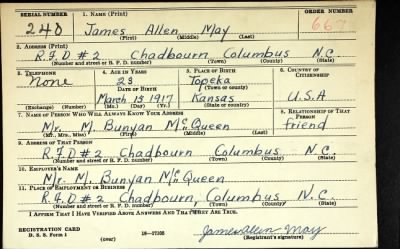 SERIAL NUMBER 1. NAME (Print) ORDER NUMBER
248 James Allen May 667
(First) (Middle) (Last)
2. ADDRESS (Print)
R.F.D #2 Chadbourn Columbus N.C.
(Number and street or R. F. D. number) (Town) (County) (State)
3. TELEPHONE 4. AGE IN YEARS 5. PLACE OF BIRTH 6. COUNTRY OF CITIZENSHIP
None 23 Topeka
DATE OF BIRTH (Town or county)
March 13 1917 Kansas U.S.A
(Exchange) (Number) (Mo.) (Day) (Yr.) (State or country)
7. NAME OF PERSON WHO WILL ALWAYS KNOW YOUR ADDRESS 8. RELATIONSHIP OF THAT PERSON
Mr. M. Bunyan McQueen friend
(Mr., Mrs., Miss) (First) (Middle) (Last)
9. ADDRESS OF THAT PERSON
R.F.D #2 Chadbourn Columbus N.C.
(Number and street or R. F. D. number) (Town) (County) (State)
10. EMPLOYER'S NAME
Mr. M. Bunyan McQueen
11. PLACE OF EMPLOYMENT OR BUSINESS
R.F.D #2 Chadbourn, Columbus N.C.
(Number and street or R. F. D. number) (Town) (County) (State)
I AFFIRM THAT I HAVE VERIFIED ABOVE ANSWERS AND THAT THEY ARE TRUE.
REGISTRATION CARD
D. S. S. Form 1 (over) 16-17105 James Allen May
(Registrant's signature)